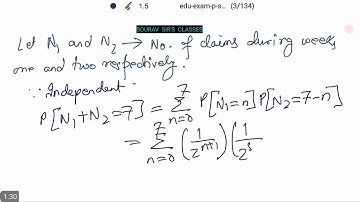 1.5 edu-exam-p-s... (3/134)
SOURAV SIR'S CLASSES
Let N₁ and N₂ → No. of claims during weeks
one and two respectively.
∵ Independent
P[N₁+N₂=7] = ∑_{n=0}^{7} P[N₁=n] P[N₂=7-n]
= ∑_{n=0}^{7} (1/2^{n+1}) (1/2^{8
1:30